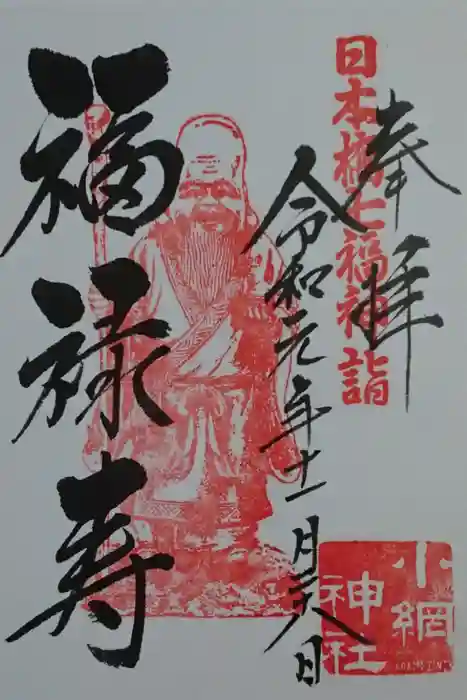 奉拝
日本橋七福神詣
令和元年十一月廿八日
福禄寿
小網
神社